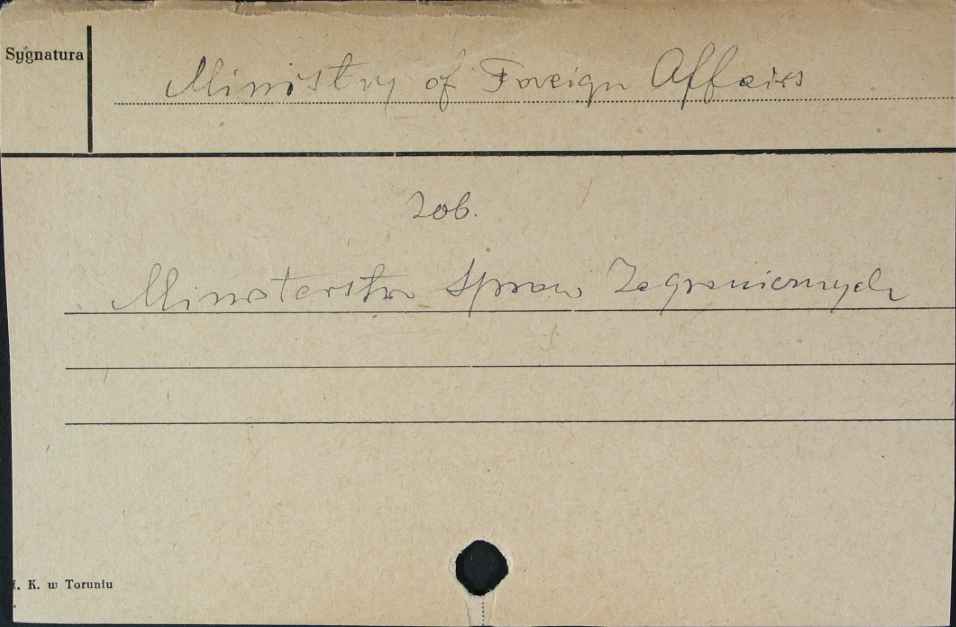 Sygnatura
Ministry of Foreign Affairs
Zob.
Ministerstwo Spraw Zagranicznych
K. w Toruniu